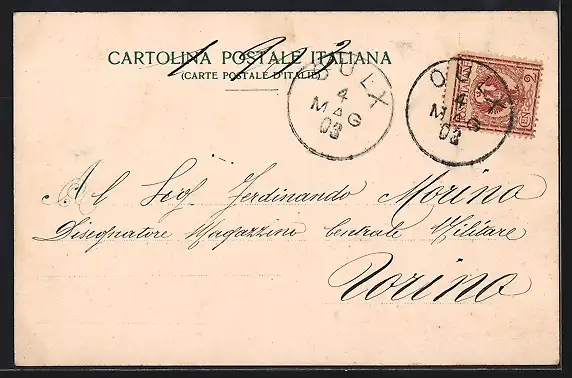 CARTOLINA POSTALE ITALIANA
(CARTE POSTALE D'ITALIE)
OULX
4
MAG
03
OULX
4
MAG
03
Al Sig. Ferdinando Morino
Disegnatore Magazzini Centrale Militare
Torino